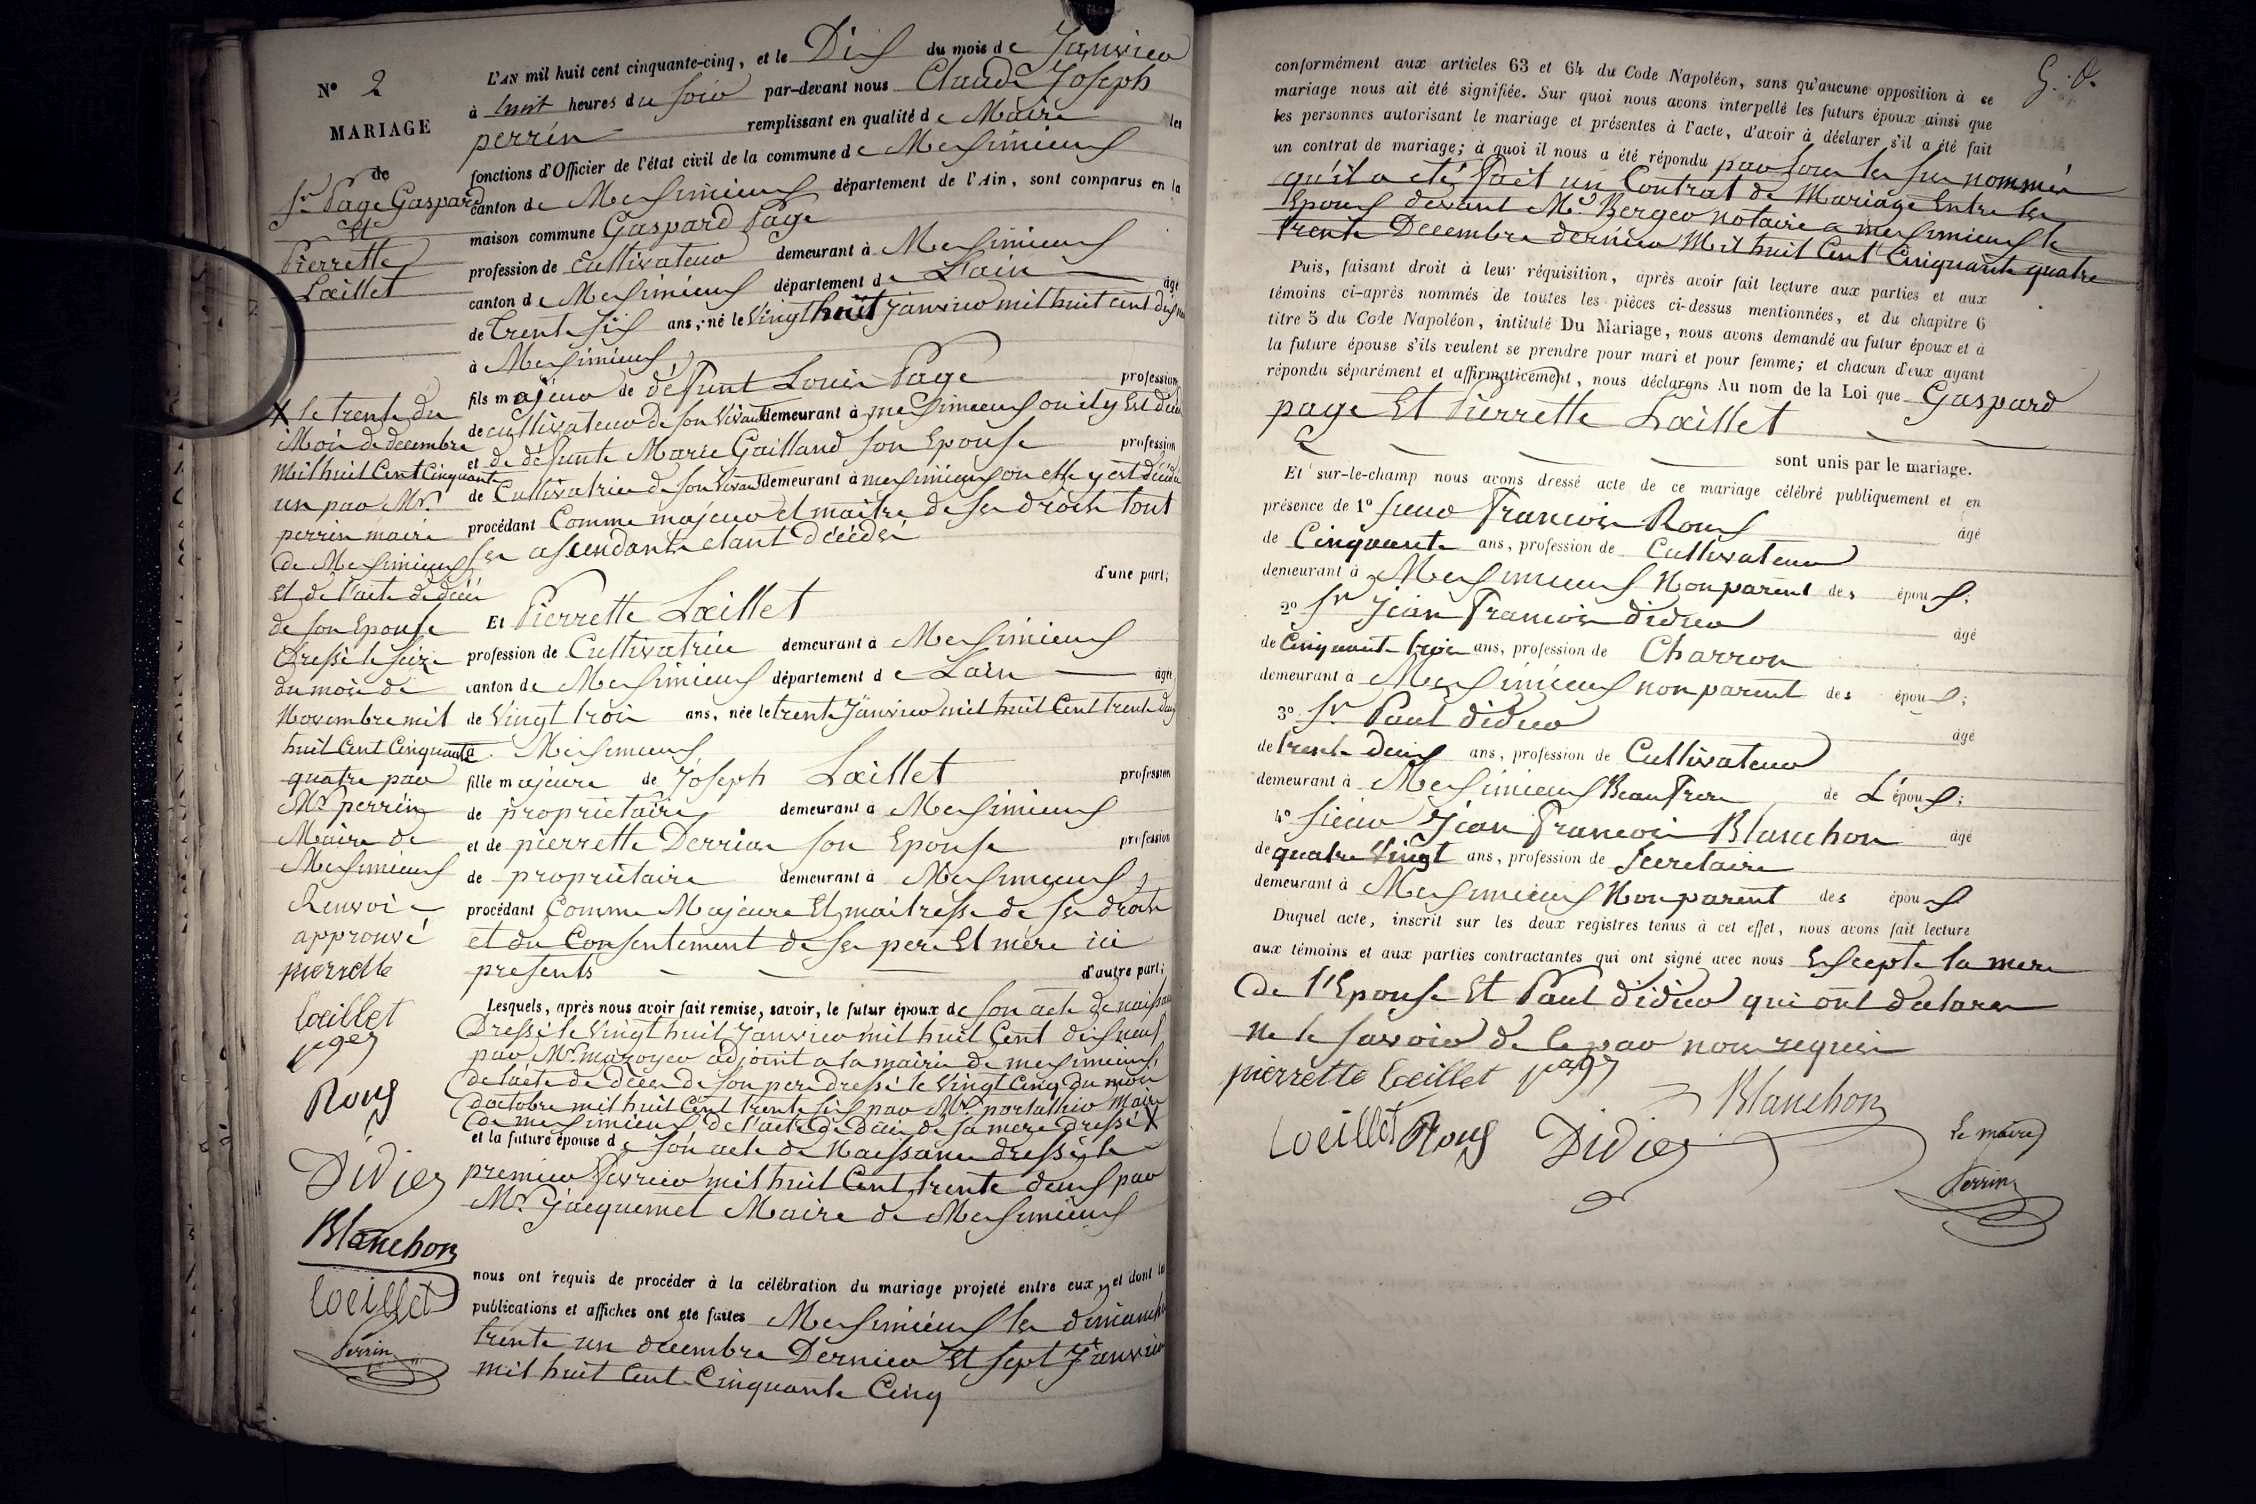 N° 2
MARIAGE
de
Sr Page Gaspard
Et
Pierrette
Lœillet
L'AN mil huit cent cinquante-cinq, et le Dix du mois de Janvier
à huit heures du soir par-devant nous Claude Joseph
perrin remplissant en qualité de Maire les
fonctions d'Officier de l'état civil de la commune de Meximieux
canton de Meximieux département de l'Ain, sont comparus en la
maison commune Gaspard Page
profession de Cultivateur demeurant à Meximieux
canton de Meximieux département de L'ain âgé
de Trente six ans, né le Vingt huit Janvier mil huit cent dix neuf
à Meximieux
fils majeur de défunt Louis Page profession
de cultivateur de son vivant demeurant à meximieux ou il y Est décédé
et de défunte Marie Gailland son Epouse profession
de Cultivatrice de son vivant demeurant à meximieux ou elle y est décédée
procédant Comme majeur et maître de ses droits tout
ses ascendants etant Décédés
d'une part;
Et Pierrette Lœillet
profession de Cultivatrice demeurant à Meximieux
canton de Meximieux département de Lain âgée
de Vingt trois ans, née le trente Janvier mil huit Cent trente deux
à Meximieux
fille majeure de Joseph Lœillet profession
de propriétaire demeurant à Meximieux
et de pierrette Derrias son Epouse profession
de propriétaire demeurant à Meximieux
procédant Comme Majeure Et maitresse de ses droits
et du Consentement de ses pere Et mère ici
presents d'autre part;
Lesquels, après nous avoir fait remise, savoir, le futur époux de son acte de naissance
Dressé le Vingt huit Janvier mil huit Cent dix neuf
par Mr. mazoyer adjoint a la mairie de meximieux
de l'acte de Décès de son pere dressé le Vingt Cinq du mois
d'octobre mil huit Cent trente six par Mr. portathier Maire
de meximieux de l'acte de Décès de sa mere dressé X
et la future épouse de son acte de Naissance dressé le
premier fevrier mil huit Cent trente deux par
Mr. Jacquemet Maire de Meximieux
nous ont requis de procéder à la célébration du mariage projeté entre eux, et dont les
publications et affiches ont été faites Meximieux les dimanches
trente un decembre Dernier Et sept Janvier
mil huit Cent Cinquante Cinq
X le trente du
Mois de decembre
Mil huit Cent Cinquante
un par Mr.
perrin maire
de Meximieux
et de l'acte de décès
de son Epouse
Dressé le seize
du mois de
Novembre mil
huit Cent Cinquante
quatre par
Mr. perrin
Maire de
Meximieux
Renvoi
approuvé
pierrette
lœillet
page
Roux
Didier
Blanchon
Loeillet
Perrin
G. O.
conformément aux articles 63 et 64 du Code Napoléon, sans qu'aucune opposition à ce
mariage nous ait été signifiée. Sur quoi nous avons interpellé les futurs époux ainsi que
les personnes autorisant le mariage et présentes à l'acte, d'avoir à déclarer s'il a été fait
un contrat de mariage; à quoi il nous a été répondu par tous les sus nommés
qu'il a été fait un Contrat de Mariage Entre les
Epoux devant Me. Berger notaire a meximieux le
trente Decembre dernier Mil huit Cent Cinquante quatre
Puis, faisant droit à leur réquisition, après avoir fait lecture aux parties et aux
témoins ci-après nommés de toutes les pièces ci-dessus mentionnées, et du chapitre 6
titre 5 du Code Napoléon, intitulé Du Mariage, nous avons demandé au futur époux et à
la future épouse s'ils veulent se prendre pour mari et pour femme; et chacun d'eux ayant
répondu séparément et affirmativement, nous déclarons Au nom de la Loi que Gaspard
page Et Pierrette Lœillet
sont unis par le mariage.
Et sur-le-champ nous avons dressé acte de ce mariage célébré publiquement et en
présence de 1° sieur Francois Roux âgé
de Cinquante ans, profession de Cultivateur
demeurant à Meximieux Non parent des époux;
2° Sr Jean Francois didier âgé
de Cinquante trois ans, profession de Charron
demeurant à Meximieux non parent des époux;
3° Sr Paul didier âgé
de trente deux ans, profession de Cultivateur
demeurant à Meximieux Beau frere de L'époux;
4° sieur Jean Francois Blanchon âgé
de quatre Vingt ans, profession de Secretaire
demeurant à Meximieux Non parent des époux
Duquel acte, inscrit sur les deux registres tenus à cet effet, nous avons fait lecture
aux témoins et aux parties contractantes qui ont signé avec nous Excepté la mere
de l'Epouse Et Paul didier qui ont déclarer
ne le savoir de ce par nous requis
pierrette lœillet page
Blanchon
Loeillet Roux Didier
Le maire
Perrin